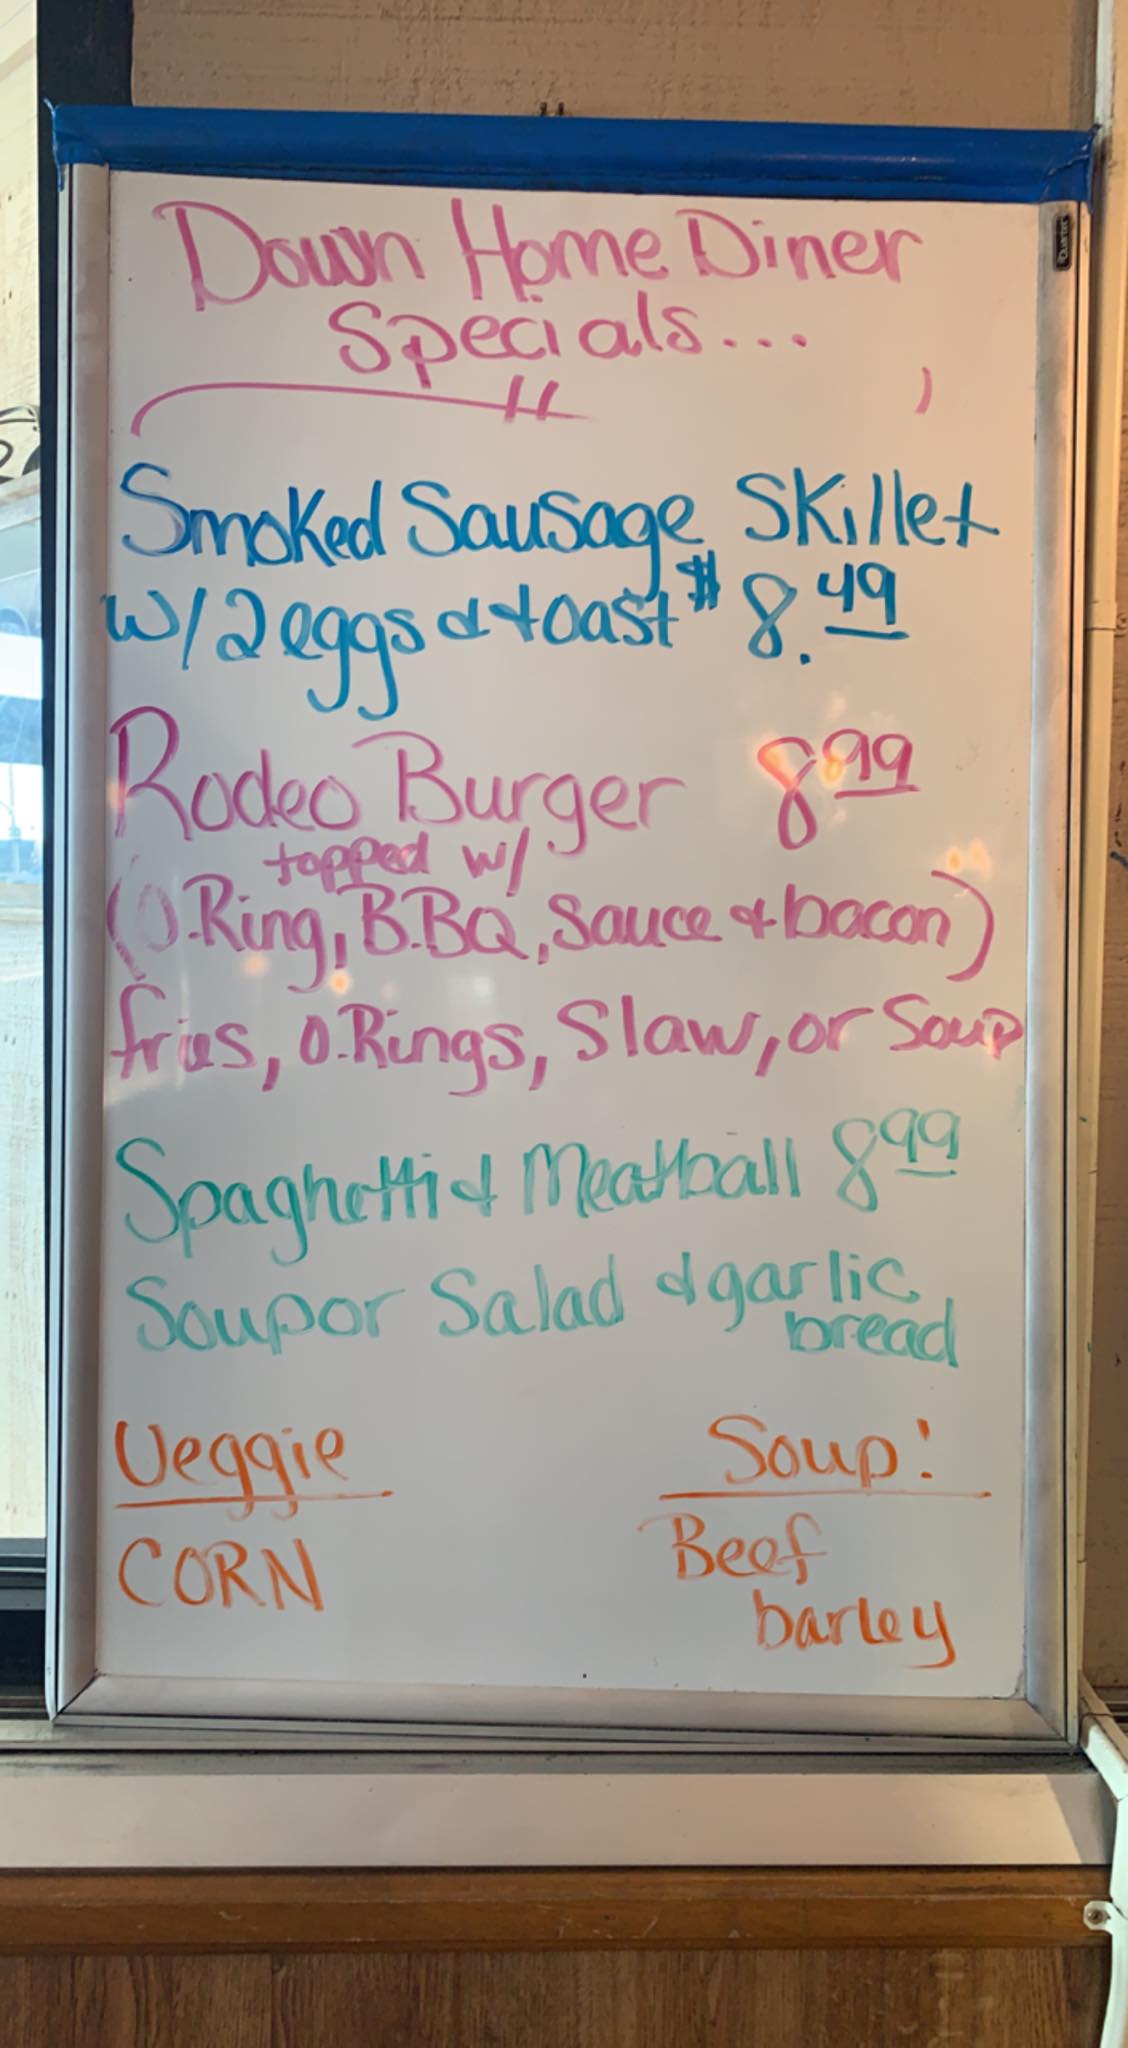 Down Home Diner
Specials...
Smoked Sausage Skillet
w/2 eggs & toast $8.49
Rodeo Burger 8 99
topped w/
(O.Ring, B.BQ, Sauce & bacon)
fries, O.Rings, Slaw, or Soup
Spaghetti & Meatball 8 99
Soup or Salad & garlic
bread
Veggie
CORN
Soup!
Beef
barley
Quartet